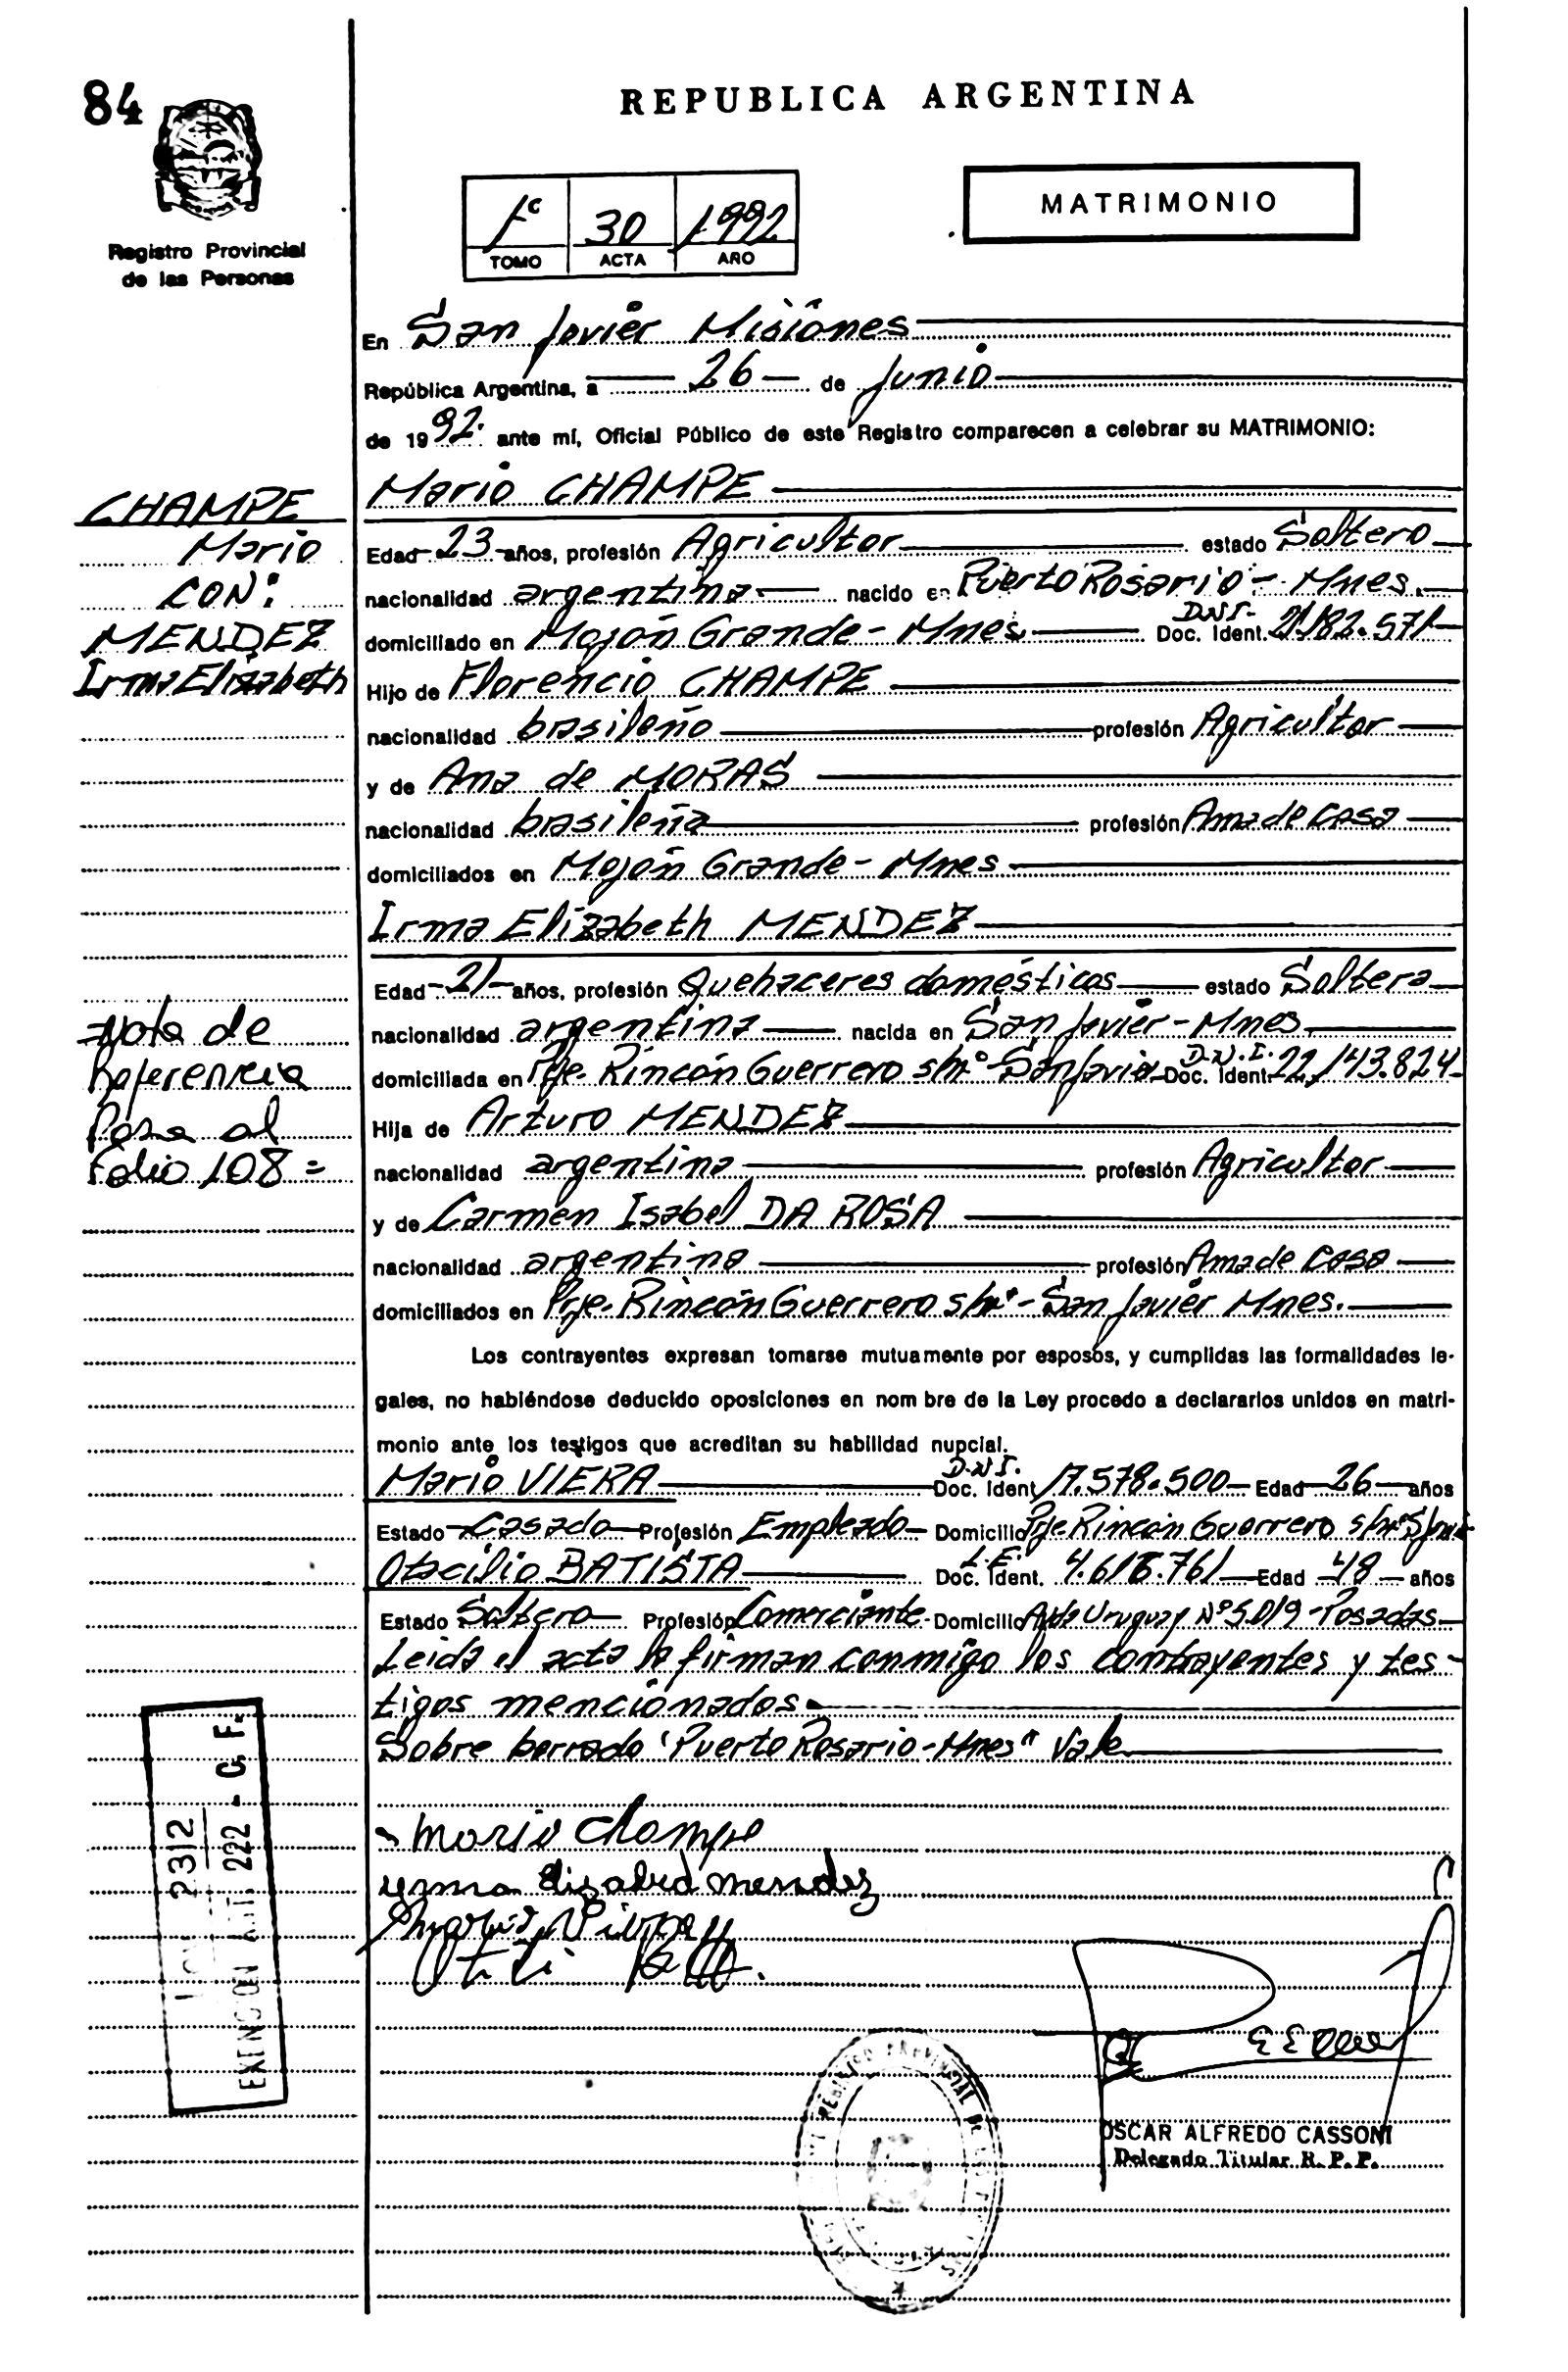 84
REPUBLICA ARGENTINA
Registro Provincial
de las Personas
1º 30 1992
TOMO ACTA AÑO
MATRIMONIO
En San Javier Misiones
República Argentina, a 26 de Junio
de 1992. ante mí, Oficial Público de este Registro comparecen a celebrar su MATRIMONIO:
CHAMPE
Mario
CON:
MENDEZ
Irma Elizabeth
Mario CHAMPE
Edad 23 años, profesión Agricultor estado Soltero
nacionalidad argentina nacido en Puerto Rosario - Mnes.
domiciliado en Mojón Grande - Mnes Doc. Ident. D.N.I. 21.182.571
Hijo de Florencio CHAMPE
nacionalidad brasileño profesión Agricultor
y de Ana de MORAS
nacionalidad brasileña profesión Ama de Casa
domiciliados en Mojón Grande - Mnes
Irma Elizabeth MENDEZ
Edad 21 años, profesión Quehaceres domésticos estado Soltera
nacionalidad argentina nacida en San Javier - Mnes
domiciliada en Pje. Rincón Guerrero s/nº - San Javier Doc. Ident. D.N.I. 22.143.824
Hija de Arturo MENDEZ
nacionalidad argentino profesión Agricultor
y de Carmen Isabel DA ROSA
nacionalidad argentina profesión Ama de Casa
domiciliados en Pje. Rincón Guerrero s/nº - San Javier Mnes.
Nota de
Referencia
Pasa al
Folio 108 =
Los contrayentes expresan tomarse mutuamente por esposos, y cumplidas las formalidades le-
gales, no habiéndose deducido oposiciones en nom bre de la Ley procedo a declararlos unidos en matri-
monio ante los testigos que acreditan su habilidad nupcial.
Mario VIERA Doc. Ident D.N.I. 17.578.500 Edad 26 años
Estado Casado Profesión Empleado Domicilio Pje Rincón Guerrero s/nº
Otacilio BATISTA Doc. Ident. L.E. 4.616.761 Edad 48 años
Estado Soltero Profesión Comerciante Domicilio Avda Uruguay Nº 5019 - Posadas
Leida el acta la firman conmigo los contrayentes y tes-
tigos mencionados.
Sobre borrado "Puerto Rosario - Mnes" Vale
Mario Champe
yrma elizabed mendez
OSCAR ALFREDO CASSONI
Delegado Titular R.P.P.
2312
EXENCION ART. 222 - C. F.